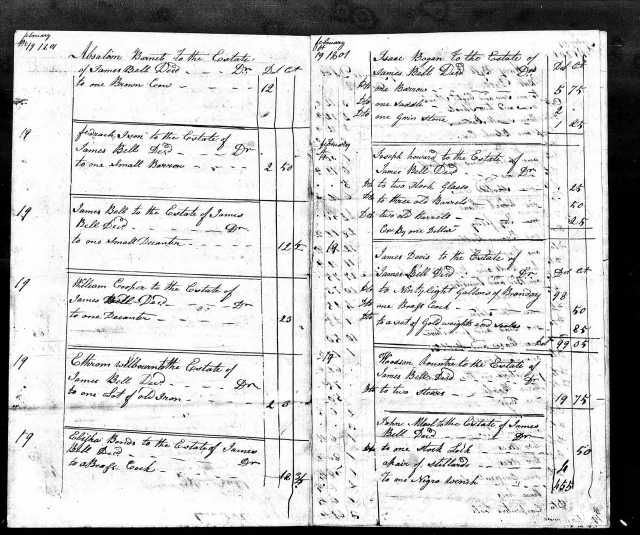 february
19 1801
Absolam Barnet to the Estate
of James Bell Decd - - - Dr Dol Ct
to one Brown Cow - - - 12
19 to the Estate of
James Bell Decd - - Dr
to one Small Barrow - - - 2 50
19 James Bell to the Estate of James
Bell Decd - - - Dr
to one Small Decanter - - 12 5
19 William Cooper to the Estate of
James Bell Decd - - - Dr
to one Decanter - - - 25
19 Ephraim to the Estate of
James Bell Decd - - - Dr
to one Lot of old Iron - - 2 0
19 Elisha Bonds to the Estate of James
Bell Decd - - - Dr
to a Brass Cock - -
february
19 1801
Isaac Bogan to the Estate of
James Bell Decd - - - Dr Dol Ct
Do one Barrow - - 5 75
Do one Saddle - - 2
Do one Grin Stone - - 1 25
february
Joseph howard to the Estate of
James Bell Decd - - Dr
Do to two Hock Glases - - 25
Do to three old Barrels - - 50
Do two old Barrels - - 25
by one Dollar
19 James Davis to the Estate of Dol Ct
James Bell Decd - - Dr
Do to Ninty Eight Gallons of Brandey 98
Do one Brass Cock - - 50
Do to a set of Gold weights and Scales 85
99 05
19 Woodson to the Estate of
James Bell Decd - - Dr
Do to two Steers - - 19 75
John to the Estate of James
Bell Decd - - Dr
Do to one Stock Lock - 50
a pair of Stillards - - 4
to one Negro wench - 455